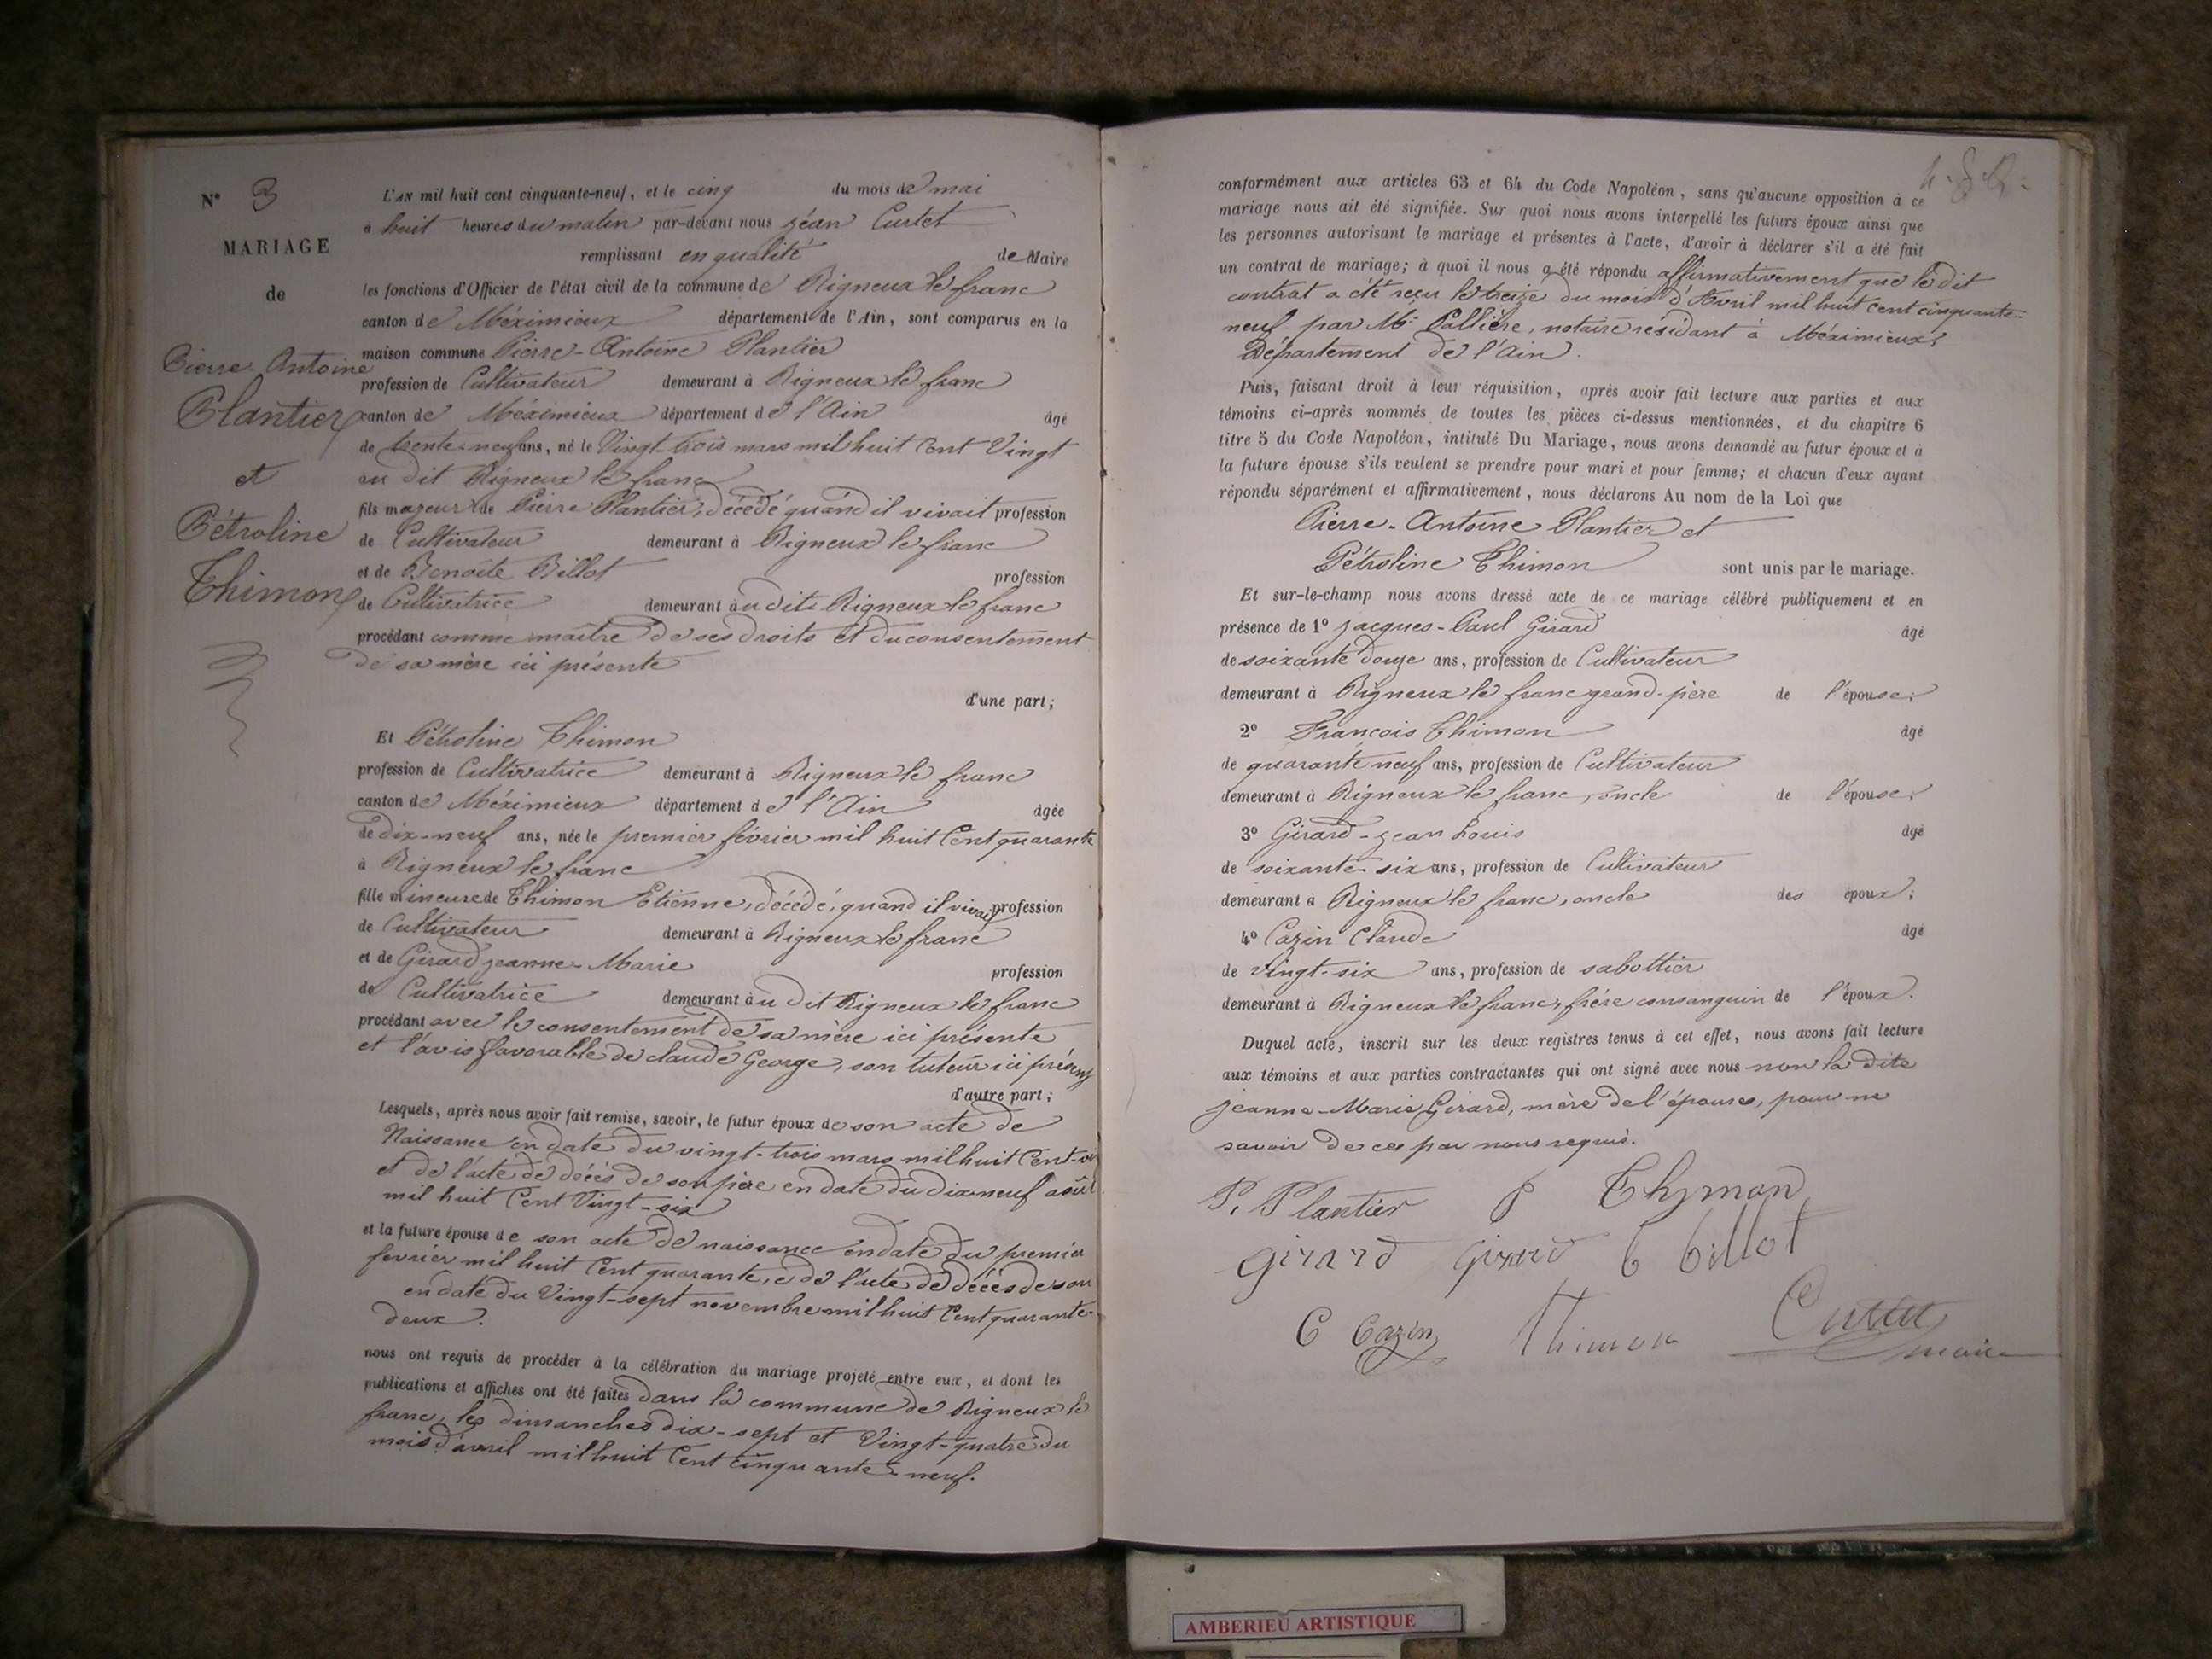 N° 3
MARIAGE
de
Pierre Antoine
Plantier
et
Pétroline
Thimon
L'AN mil huit cent cinquante-neuf, et le cinq du mois de mai
à huit heures du matin par-devant nous jéan Curtet
remplissant en qualité de Maire
les fonctions d'Officier de l'état civil de la commune de Rigneux le franc
canton de Méximieux département de l'Ain, sont comparus en la
maison commune Pierre-Antoine Plantier
profession de Cultivateur demeurant à Rigneux le franc
canton de Méximieux département de l'Ain âgé
de trente-neuf ans, né le Vingt-trois mars mil huit Cent Vingt
au dit Rigneux le franc
fils majeur de Pierre Plantier, décédé quand il vivait profession
de Cultivateur demeurant à Rigneux le franc
et de Benoite Billot profession
de Cultivatrice demeurant au dit Rigneux le franc
procédant comme maître de ses droits et du consentement
de sa mère ici présente
d'une part;
Et Pétroline Thimon
profession de Cultivatrice demeurant à Rigneux le franc
canton de Méximieux département de l'Ain âgée
de dix-neuf ans, née le premier février mil huit Cent quarante
à Rigneux le franc
fille mineure de Thimon Etienne, décédé, quand il vivait profession
de Cultivateur demeurant à Rigneux le franc
et de Girard jeanne-Marie profession
de Cultivatrice demeurant au dit Rigneux le franc
procédant avec le consentement de sa mère ici présente
et l'avis favorable de claude George, son tuteur ici présent
d'autre part;
Lesquels, après nous avoir fait remise, savoir, le futur époux de son acte de
Naissance en date du vingt-trois mars mil huit Cent
et de l'acte de décès de son père en date du dix-neuf août
mil huit Cent Vingt-six
et la future épouse de son acte de naissance en date du premier
fevrier mil huit Cent quarante, e de l'acte de décès de son
en date du Vingt-sept novembre mil huit Cent quarante-
deux.
nous ont requis de procéder à la célébration du mariage projeté entre eux, et dont les
publications et affiches ont été faites dans la commune de Rigneux le
franc, les dimanches dix-sept et Vingt-quatre du
mois d'avril mil huit Cent cinquante-neuf.
conformément aux articles 63 et 64 du Code Napoléon, sans qu'aucune opposition à ce
mariage nous ait été signifiée. Sur quoi nous avons interpellé les futurs époux ainsi que
les personnes autorisant le mariage et présentes à l'acte, d'avoir à déclarer s'il a été fait
un contrat de mariage; à quoi il nous a été répondu affirmativement que le dit
contrat a été reçu le treize du mois d'Avril mil huit Cent cinquante-
neuf par Me Pallière, notaire résidant à Méximieux,
Département de l'Ain.
Puis, faisant droit à leur réquisition, après avoir fait lecture aux parties et aux
témoins ci-après nommés de toutes les pièces ci-dessus mentionnées, et du chapitre 6
titre 5 du Code Napoléon, intitulé Du Mariage, nous avons demandé au futur époux et à
la future épouse s'ils veulent se prendre pour mari et pour femme; et chacun d'eux ayant
répondu séparément et affirmativement, nous déclarons Au nom de la Loi que
Pierre-Antoine Plantier et
Pétroline Thimon sont unis par le mariage.
Et sur-le-champ nous avons dressé acte de ce mariage célébré publiquement et en
présence de 1° jacques-Paul Girard âgé
de soixante douze ans, profession de Cultivateur
demeurant à Rigneux le franc grand-père de l'épouse;
2° François Thimon âgé
de quarante neuf ans, profession de Cultivateur
demeurant à Rigneux le franc, oncle de l'épouse;
3° Girard-jean Louis âgé
de soixante-six ans, profession de Cultivateur
demeurant à Rigneux le franc, oncle des époux;
4° Cazin Claude âgé
de vingt-six ans, profession de sabottier
demeurant à Rigneux le franc, frère consanguin de l'époux.
Duquel acte, inscrit sur les deux registres tenus à cet effet, nous avons fait lecture
aux témoins et aux parties contractantes qui ont signé avec nous non la dite
jeanne-Marie Girard, mère de l'épouse, pour ne
savoir de ce par nous requis.
P. Plantier P Thymon
girard girard B billot
C Cazin Thimon Curtet
maire
AMBERIEU ARTISTIQUE